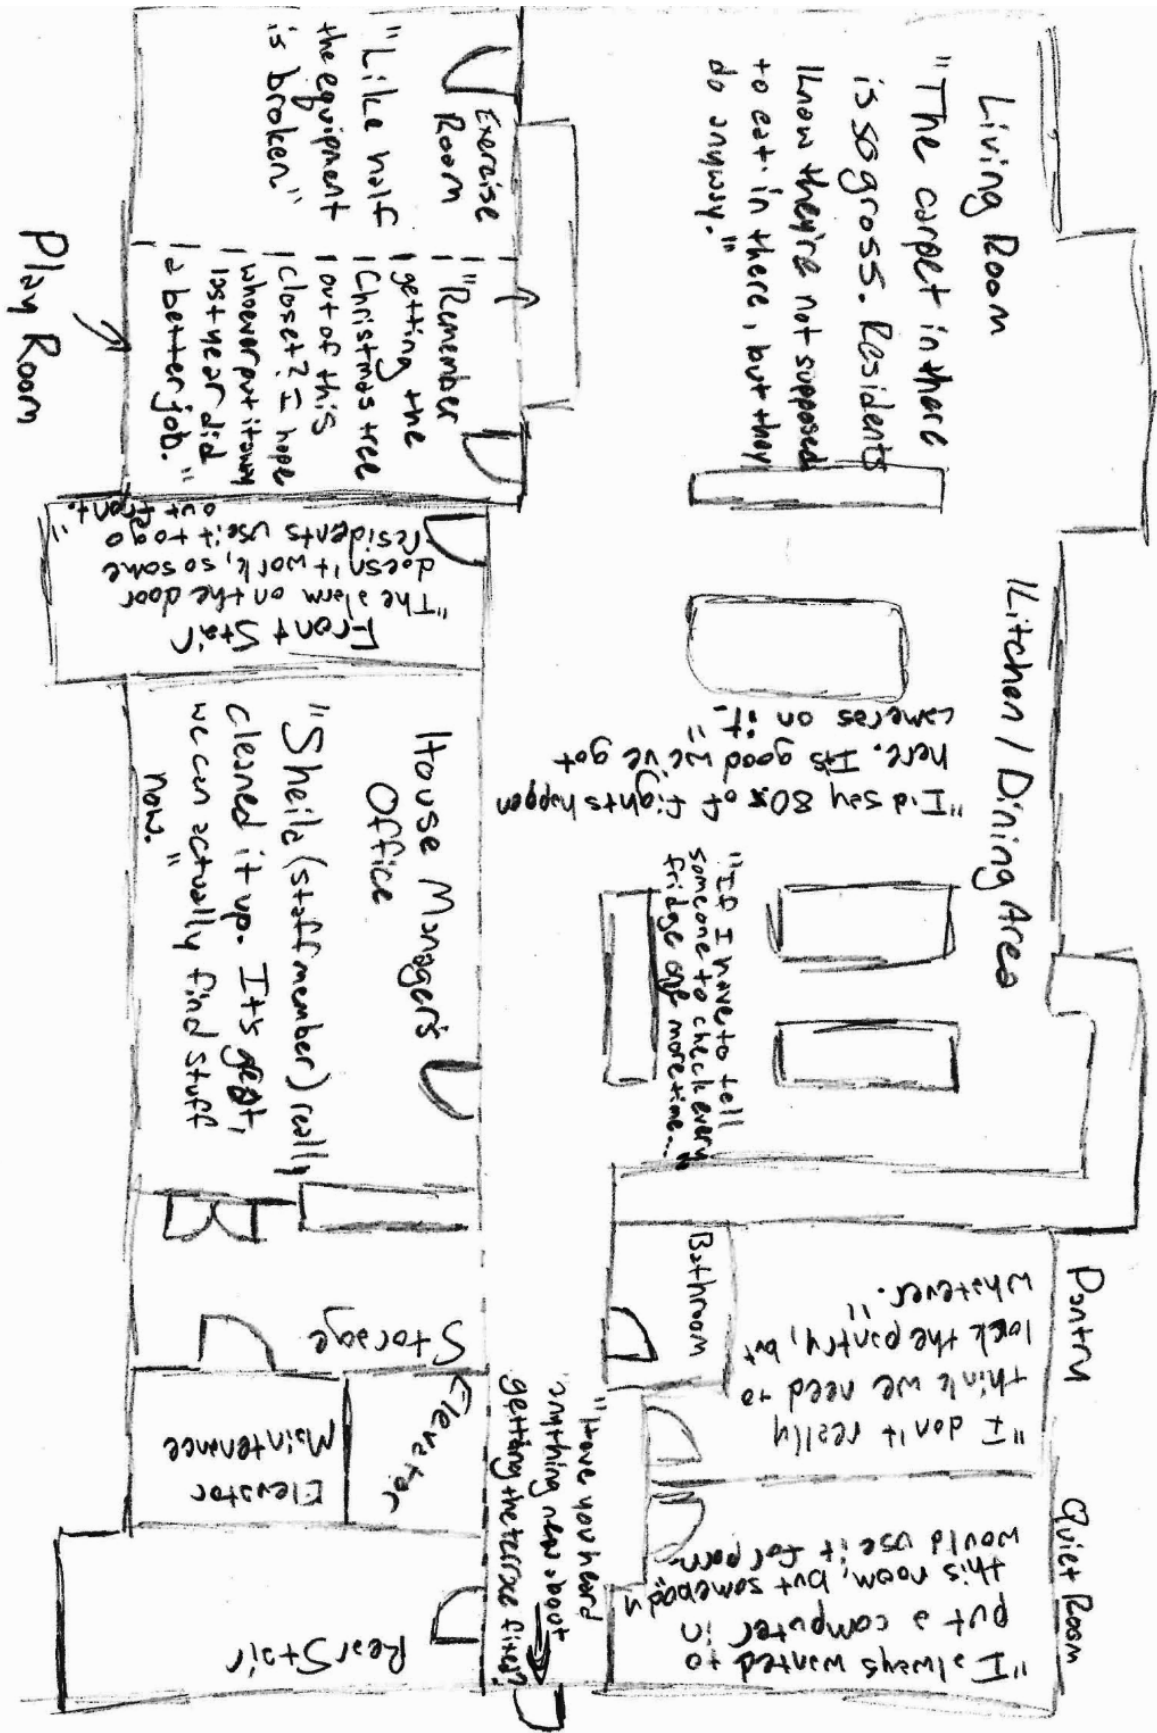 Living Room
"The carpet in there
is so gross. Residents
know they're not supposed
to eat in there, but they
do anyway."
Exercise
Room
"Like half
the equipment
is broken."
"Remember
getting the
Christmas tree
out of this
closet? I hope
whoever put it away
last year did
a better job."
Play Room
Front Stair
"The alarm on the door
doesn't work, so some
residents use it to go
out front."
Kitchen / Dining Area
"I'd say 80% of fights happen
here. It's good we've got
cameras on it."
"If I have to tell
someone to check every
fridge one more time..."
House Manager's
Office
"Sheila (staff member) really
cleaned it up. It's great,
we can actually find stuff
now."
Storage
Bathroom
Pantry
"I don't really
think we need to
lock the pantry, but
whatever."
Elevator
Elevator
Maintenance
"Have you heard
anything new about
getting the terrace fixed?"
Quiet Room
"I always wanted to
put a computer in
this room, but somebody
would use it for porn."
Rear Stair